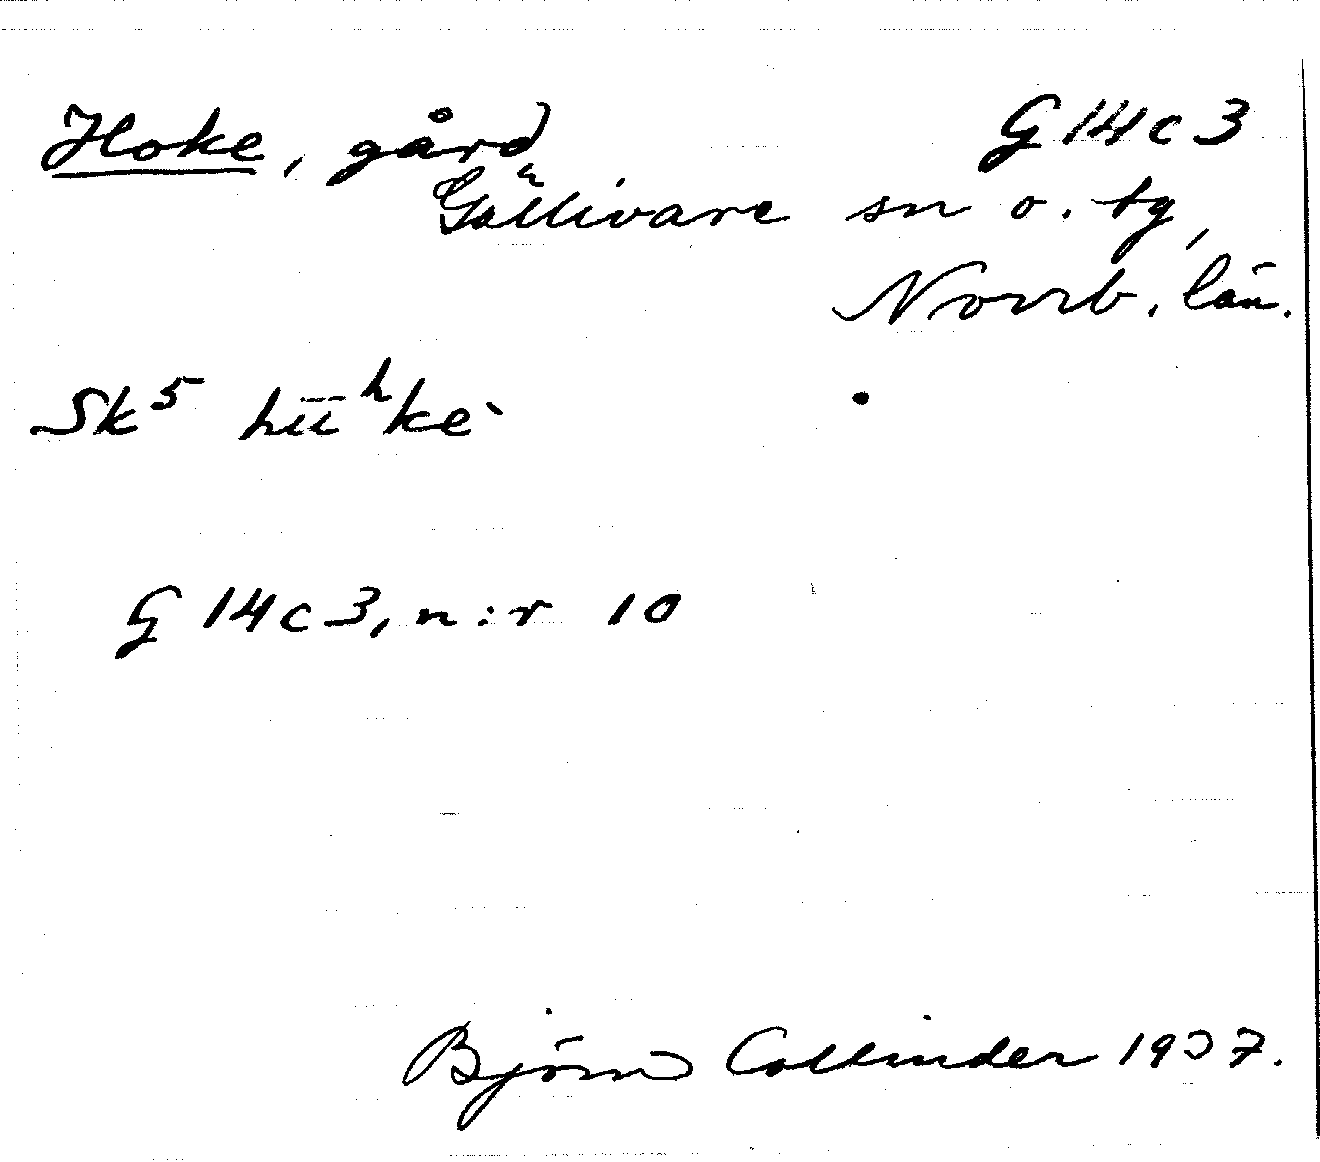 Hoke, gård G 14 c 3
Gällivare sn o. tg,
Norrb. län.
Sk⁵ hūʰkè
G 14 c 3, n:r 10
Björn Collinder 1937.